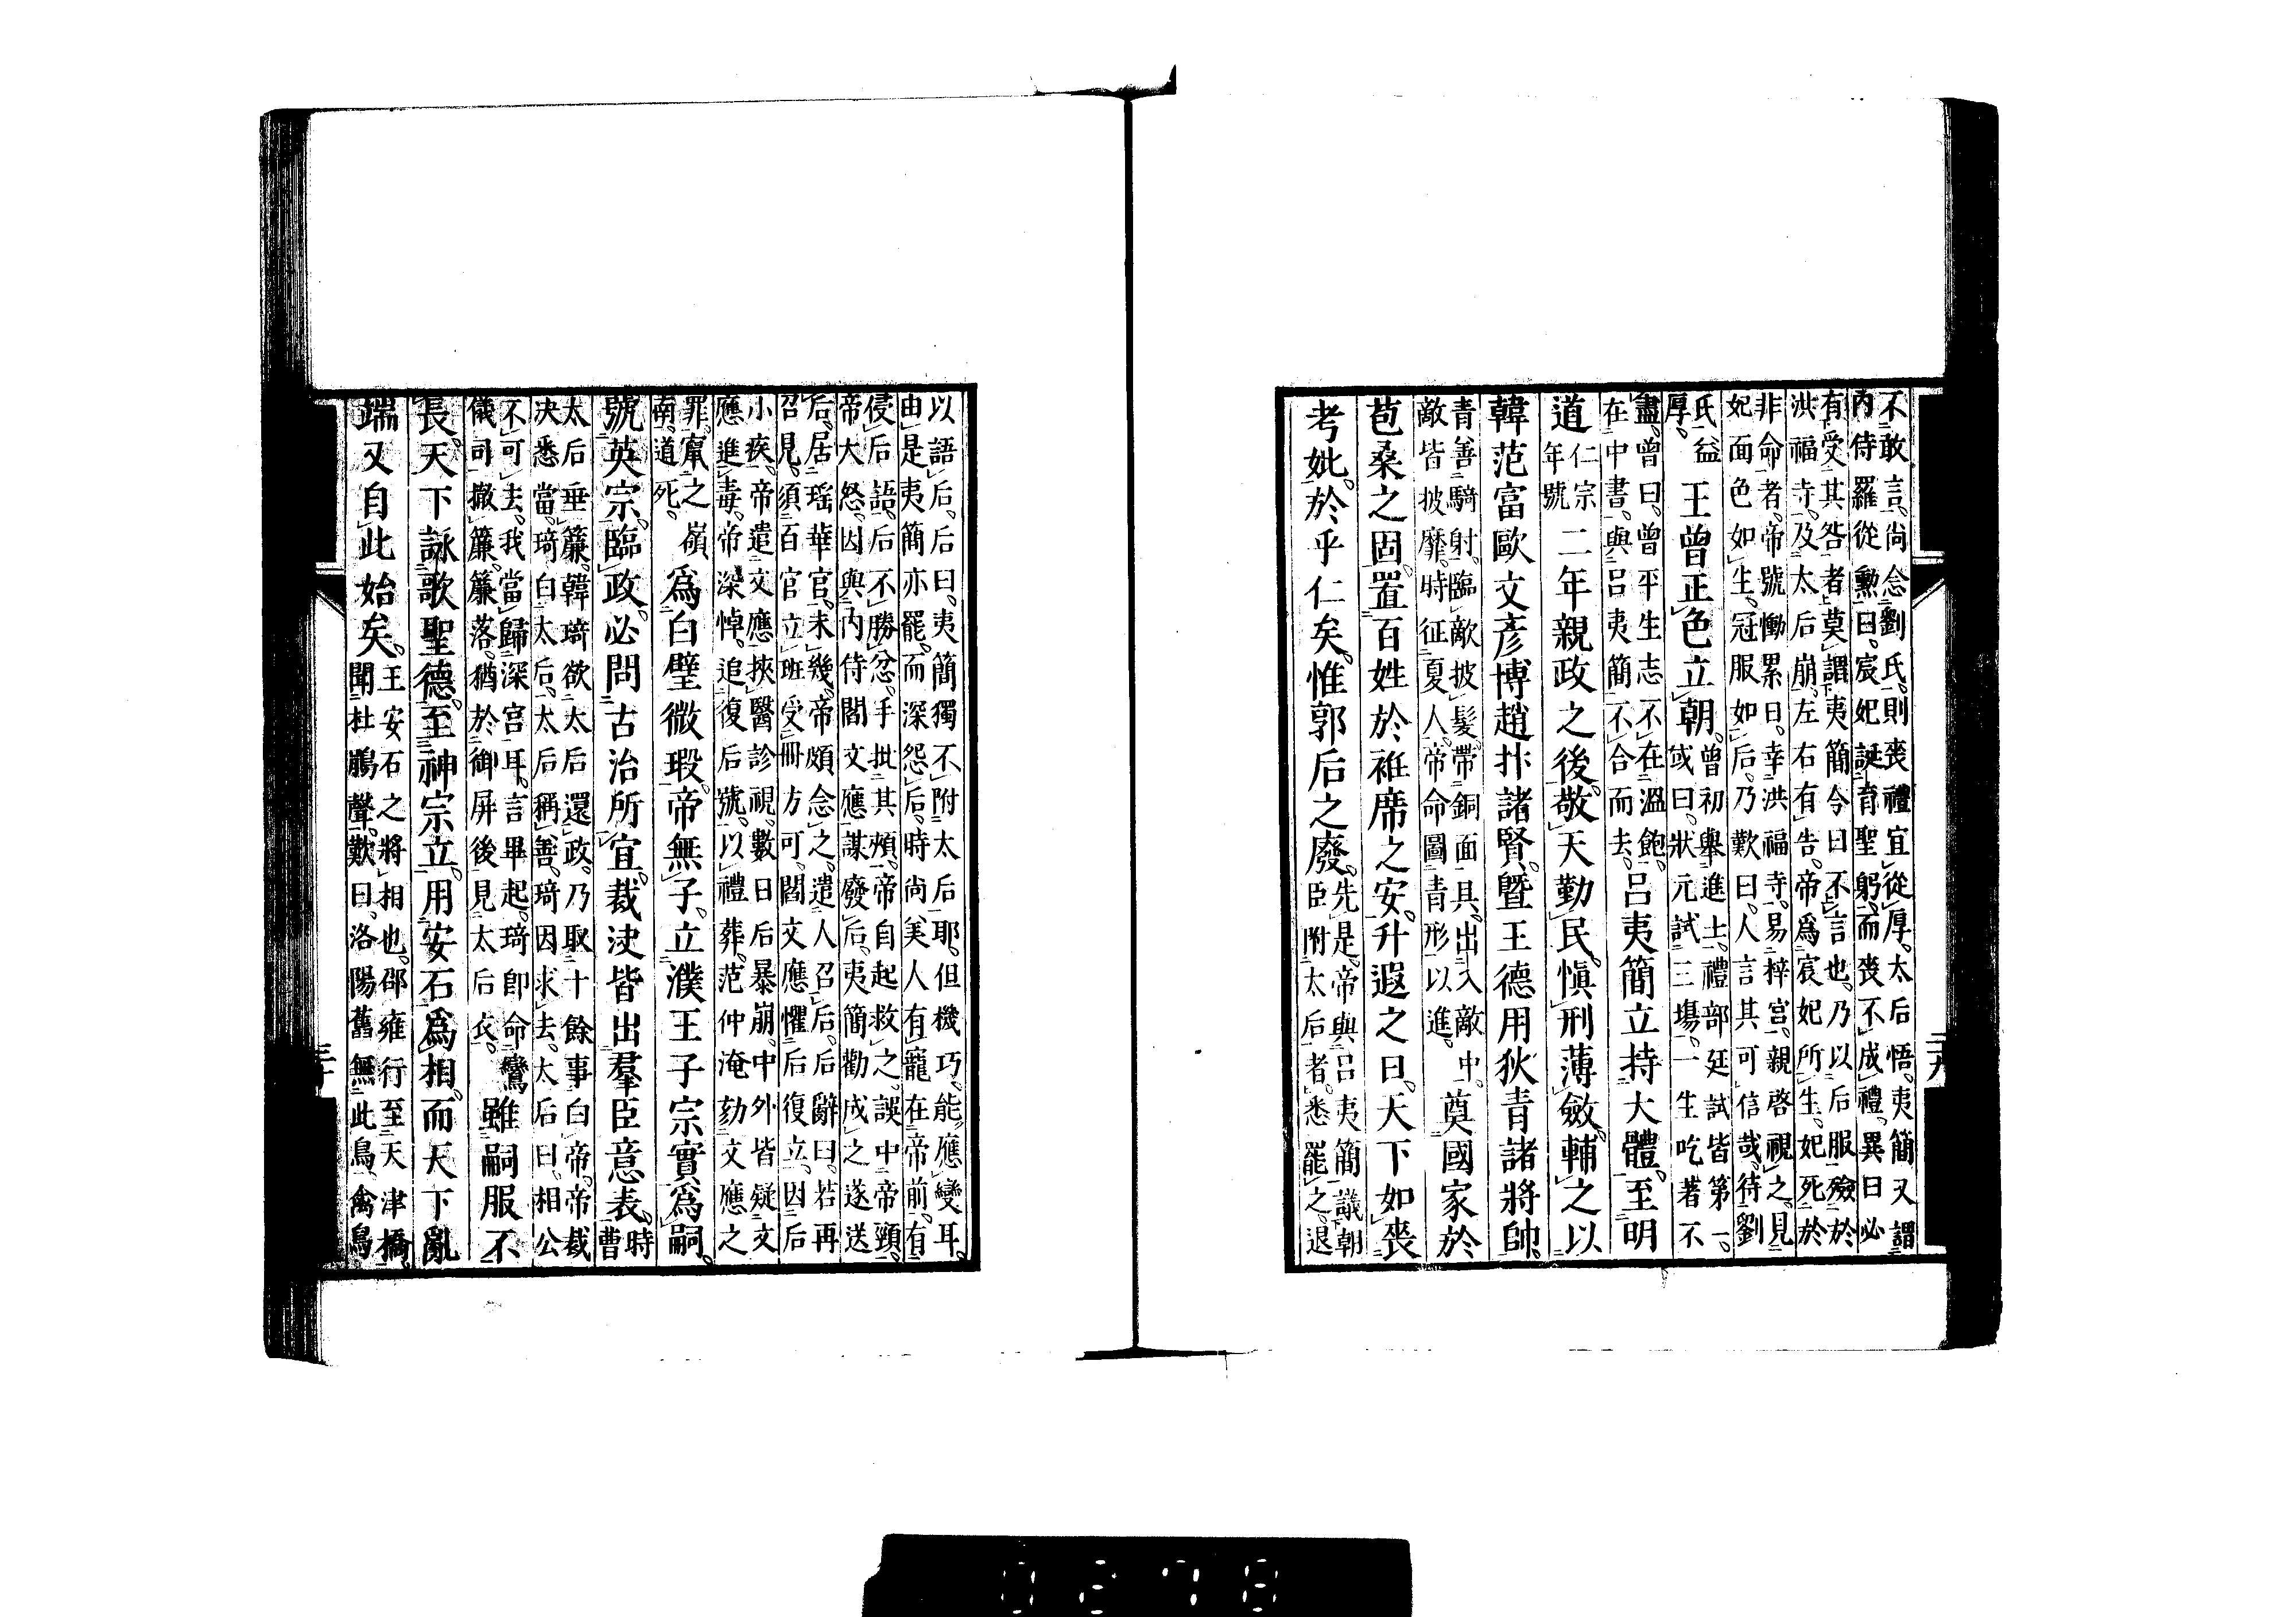 不敢言。尚念劉氏。則喪禮宜從厚。太后悟。夷簡又謂
內侍羅從勳曰。宸妃誕育聖躬。而喪不成禮。異日必
有受其咎者。莫謂夷簡今日不言也。乃以后服殮於
洪福寺。及太后崩。左右有告。帝爲宸妃所生。妃死於
非命者。帝號慟累日。幸洪福寺。易梓宮。親啓視之。見
妃面色如生。冠服如后。乃歎曰。人言其可信哉。待劉
氏益厚。王曾正色立朝。曾初舉進士。禮部廷試皆第一。或曰。狀元試三場。一生吃著不
盡。曾曰。曾平生志不在溫飽。在中書。與呂夷簡不合而去。呂夷簡立持大體。至明
道仁宗年號二年親政之後。敬天勤民。愼刑薄斂。輔之以
韓范富歐文彥博趙抃諸賢。曁王德用狄青諸將帥。
青善騎射。臨敵披髮。帶銅面具。出入敵中。敵皆披靡。時征夏人。帝命圖青形以進。奠國家於
苞桑之固。置百姓於袵席之安。升遐之日。天下如喪
考妣。於乎仁矣。惟郭后之廢。先是。帝與呂夷簡議朝臣附太后者。悉罷之。退
二十九
以語后。后曰。夷簡獨不附太后耶。但機巧。能應變耳。
由是夷簡亦罷。而深怨后。時尚美人有寵。在帝前。有
侵后語。后不勝忿。手批其頰。帝自起救之。誤中帝頸。
帝大怒。因與內侍閻文應謀廢后。夷簡勸成之。遂送
后。居瑤華宮。未幾。帝頗念之。遣人召后。后辭曰。若再
召見。須百官立班受冊方可。閻文應懼后復立。因后
小疾。帝遣文應挾醫診視。數日后暴崩。中外皆疑文
應進毒。帝深悼。追復后號。以禮葬。范仲淹劾文應之
罪。竄之嶺南。道死。爲白璧微瑕。帝無子。立濮王子宗實爲嗣。
號英宗。臨政。必問古治所宜。裁決皆出羣臣意表。時曹
太后垂簾。韓琦欲太后還政。乃取十餘事白帝。帝裁
決悉當。琦白太后。太后稱善。琦因求去。太后曰。相公
不可去。我當歸深宮耳。言畢起。琦卽命鸞儀司撤簾。簾落。猶於御屏後見太后衣。雖嗣服不
長。天下詠歌聖德。至神宗立。用安石爲相。而天下亂
端又自此始矣。王安石之將相也。邵雍行至天津橋。聞杜鵑聲。歎曰。洛陽舊無此鳥。禽鳥
三十
0278